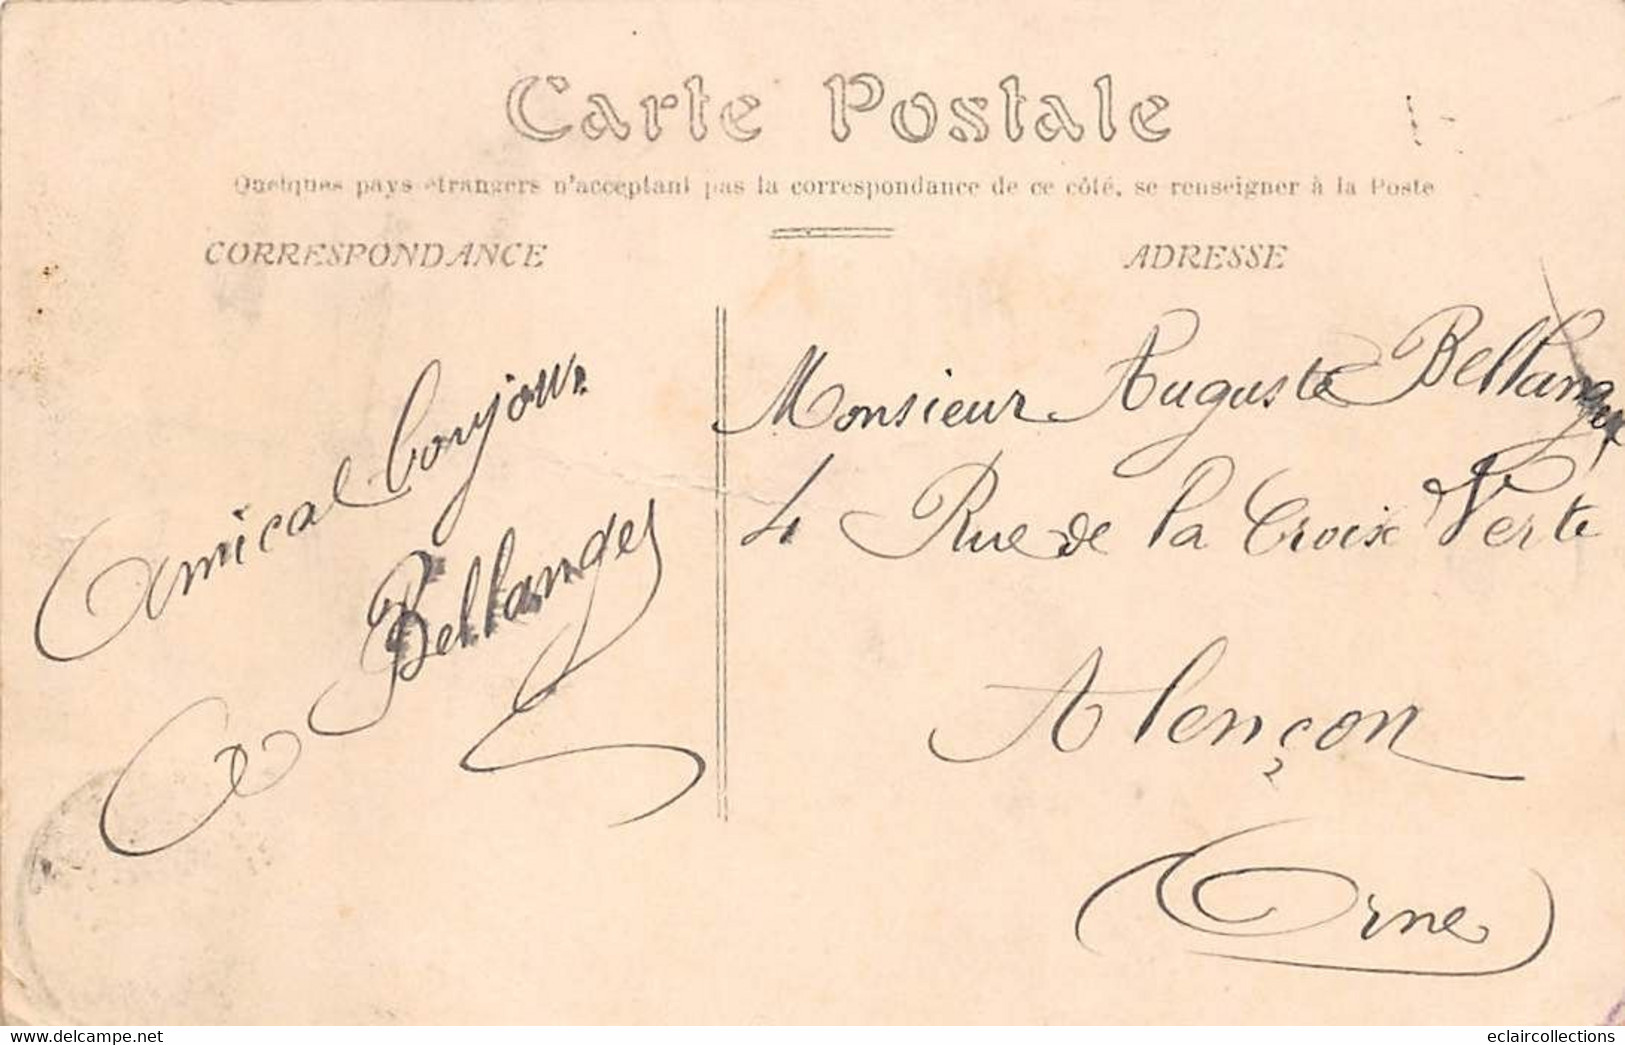 Carte Postale
Quelques pays étrangers n'acceptant pas la correspondance de ce côté, se renseigner à la Poste
CORRESPONDANCE
ADRESSE
Amical bonjour
Bellanger
Monsieur Auguste Bellanger
4 Rue de la Croix Verte
Alençon
(Orne)
eclaircollections